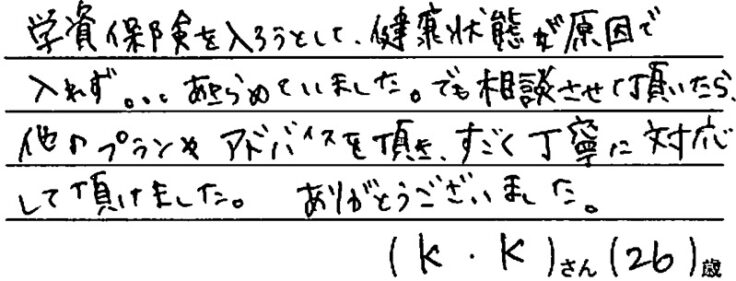 学資保険を入ろうとして、健康状態が原因で
入れず。。、あきらめていました。でも相談させて頂いたら、
他のプランやアドバイスを頂き、すごく丁寧に対応
して頂けました。 ありがとうございました。
(K・K)さん(26)歳